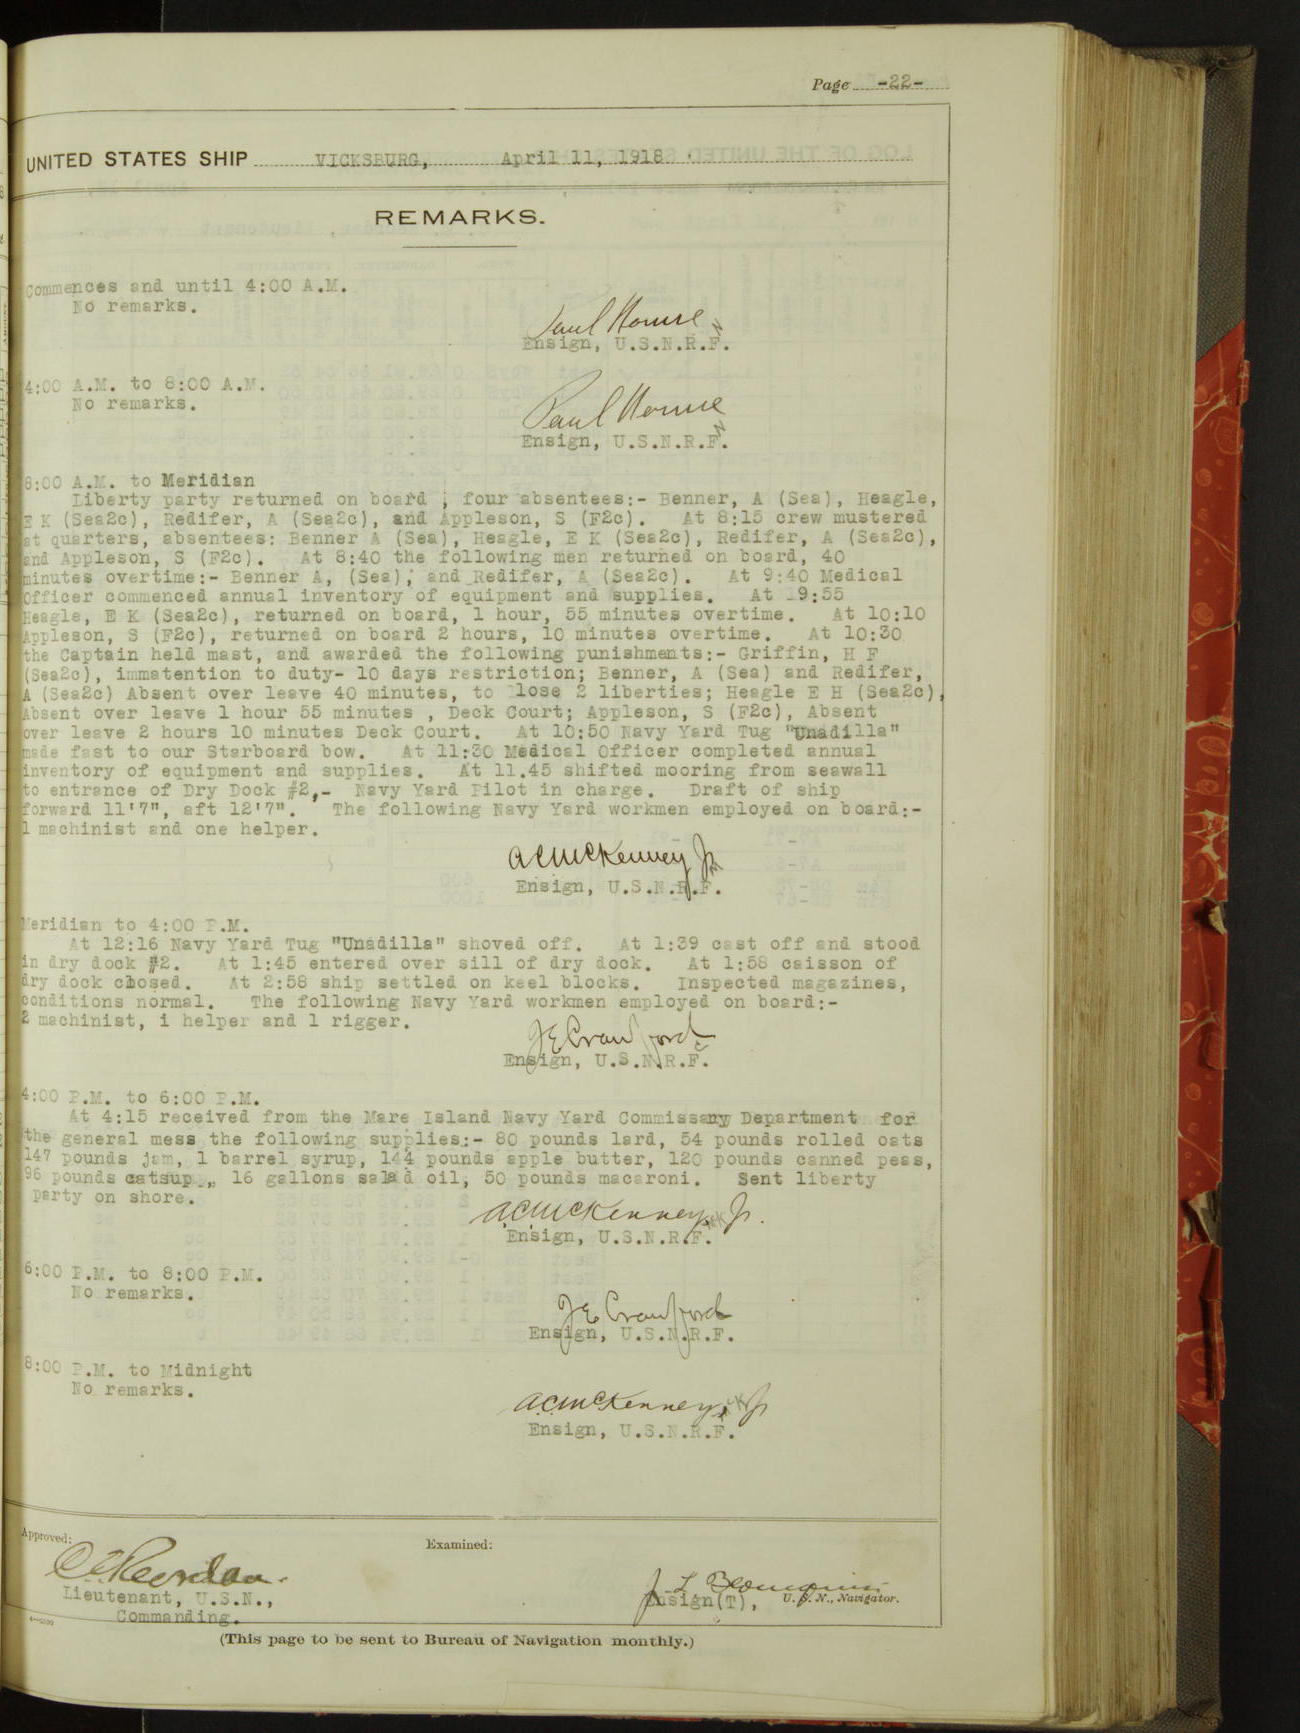 Page -22-
UNITED STATES SHIP VICKSBURG, April 11, 1918
REMARKS.
Commences and until 4:00 A.M.
No remarks.
Paul
Ensign, U.S.N.R.F.
4:00 A.M. to 8:00 A.M.
No remarks.
Paul
Ensign, U.S.N.R.F.
8:00 A.M. to Meridian
Liberty party returned on board ; four absentees:- Benner, A (Sea), Heagle,
E K (Sea2c), Redifer, A (Sea2c), and Appleson, S (F2c). At 8:15 crew mustered
at quarters, absentees: Benner A (Sea), Heagle, E K (Sea2c), Redifer, A (Sea2c),
and Appleson, S (F2c). At 8:40 the following men returned on board, 40
minutes overtime:- Benner A, (Sea), and Redifer, A (Sea2c). At 9:40 Medical
Officer commenced annual inventory of equipment and supplies. At 9:55
Heagle, E K (Sea2c), returned on board, 1 hour, 55 minutes overtime. At 10:10
Appleson, S (F2c), returned on board 2 hours, 10 minutes overtime. At 10:30
the Captain held mast, and awarded the following punishments:- Griffin, H F
(Sea2c), immatention to duty- 10 days restriction; Benner, A (Sea) and Redifer,
A (Sea2c) Absent over leave 40 minutes, to lose 2 liberties; Heagle E H (Sea2c),
Absent over leave 1 hour 55 minutes , Deck Court; Appleson, S (F2c), Absent
over leave 2 hours 10 minutes Deck Court. At 10:50 Navy Yard Tug "Unadilla"
made fast to our Starboard bow. At 11:30 Medical Officer completed annual
inventory of equipment and supplies. At 11.45 shifted mooring from seawall
to entrance of Dry Dock #2,- Navy Yard Pilot in charge. Draft of ship
forward 11'7", aft 12'7". The following Navy Yard workmen employed on board:-
1 machinist and one helper.
A.C. McKenney Jr
Ensign, U.S.N.R.F.
Meridian to 4:00 P.M.
At 12:16 Navy Yard Tug "Unadilla" shoved off. At 1:39 cast off and stood
in dry dock #2. At 1:45 entered over sill of dry dock. At 1:58 caisson of
dry dock closed. At 2:58 ship settled on keel blocks. Inspected magazines,
conditions normal. The following Navy Yard workmen employed on board:-
2 machinist, i helper and 1 rigger.
J E Crawford
Ensign, U.S.N.R.F.
4:00 P.M. to 6:00 P.M.
At 4:15 received from the Mare Island Navy Yard Commissary Department for
the general mess the following supplies:- 80 pounds lard, 54 pounds rolled oats
147 pounds jam, 1 barrel syrup, 144 pounds apple butter, 120 pounds canned peas,
96 pounds catsup , 16 gallons salad oil, 50 pounds macaroni. Sent liberty
party on shore.
A.C. McKenney, Jr.
Ensign, U.S.N.R.F.
6:00 P.M. to 8:00 P.M.
No remarks.
J E Crawford
Ensign, U.S.N.R.F.
8:00 P.M. to Midnight
No remarks.
A.C. McKenney, Jr
Ensign, U.S.N.R.F.
Approved:
Examined:
Lieutenant, U.S.N.,
Commanding.
Ensign(T), U. S. N., Navigator.
(This page to be sent to Bureau of Navigation monthly.)